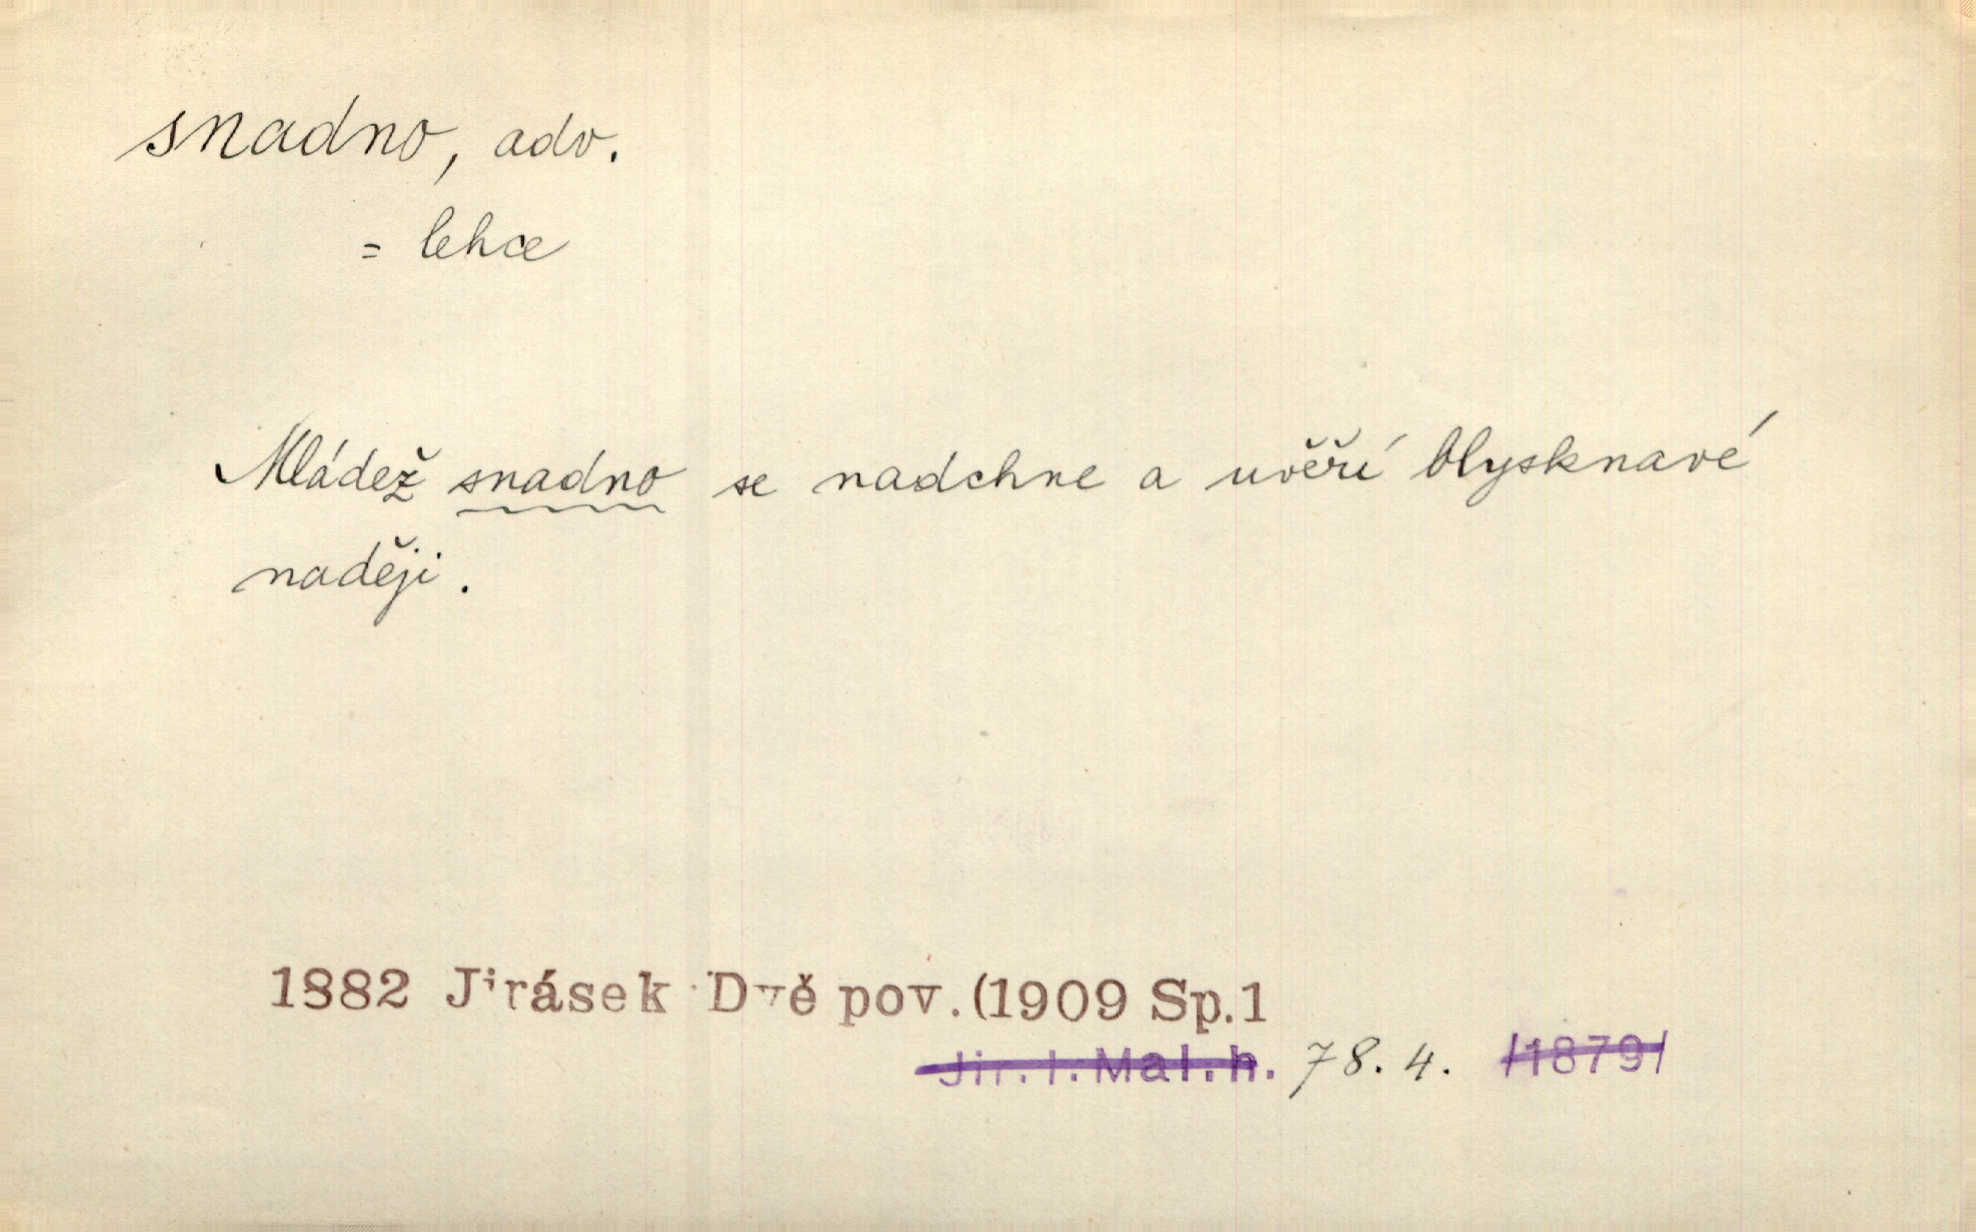 snadno, adv.
= lehce
Mládež snadno se nadchne a uvěří blysknavé
naději.
1882 Jirásek Dvě pov. (1909 Sp.1
Jir. I. Mal. h. 78. 4. /1879/